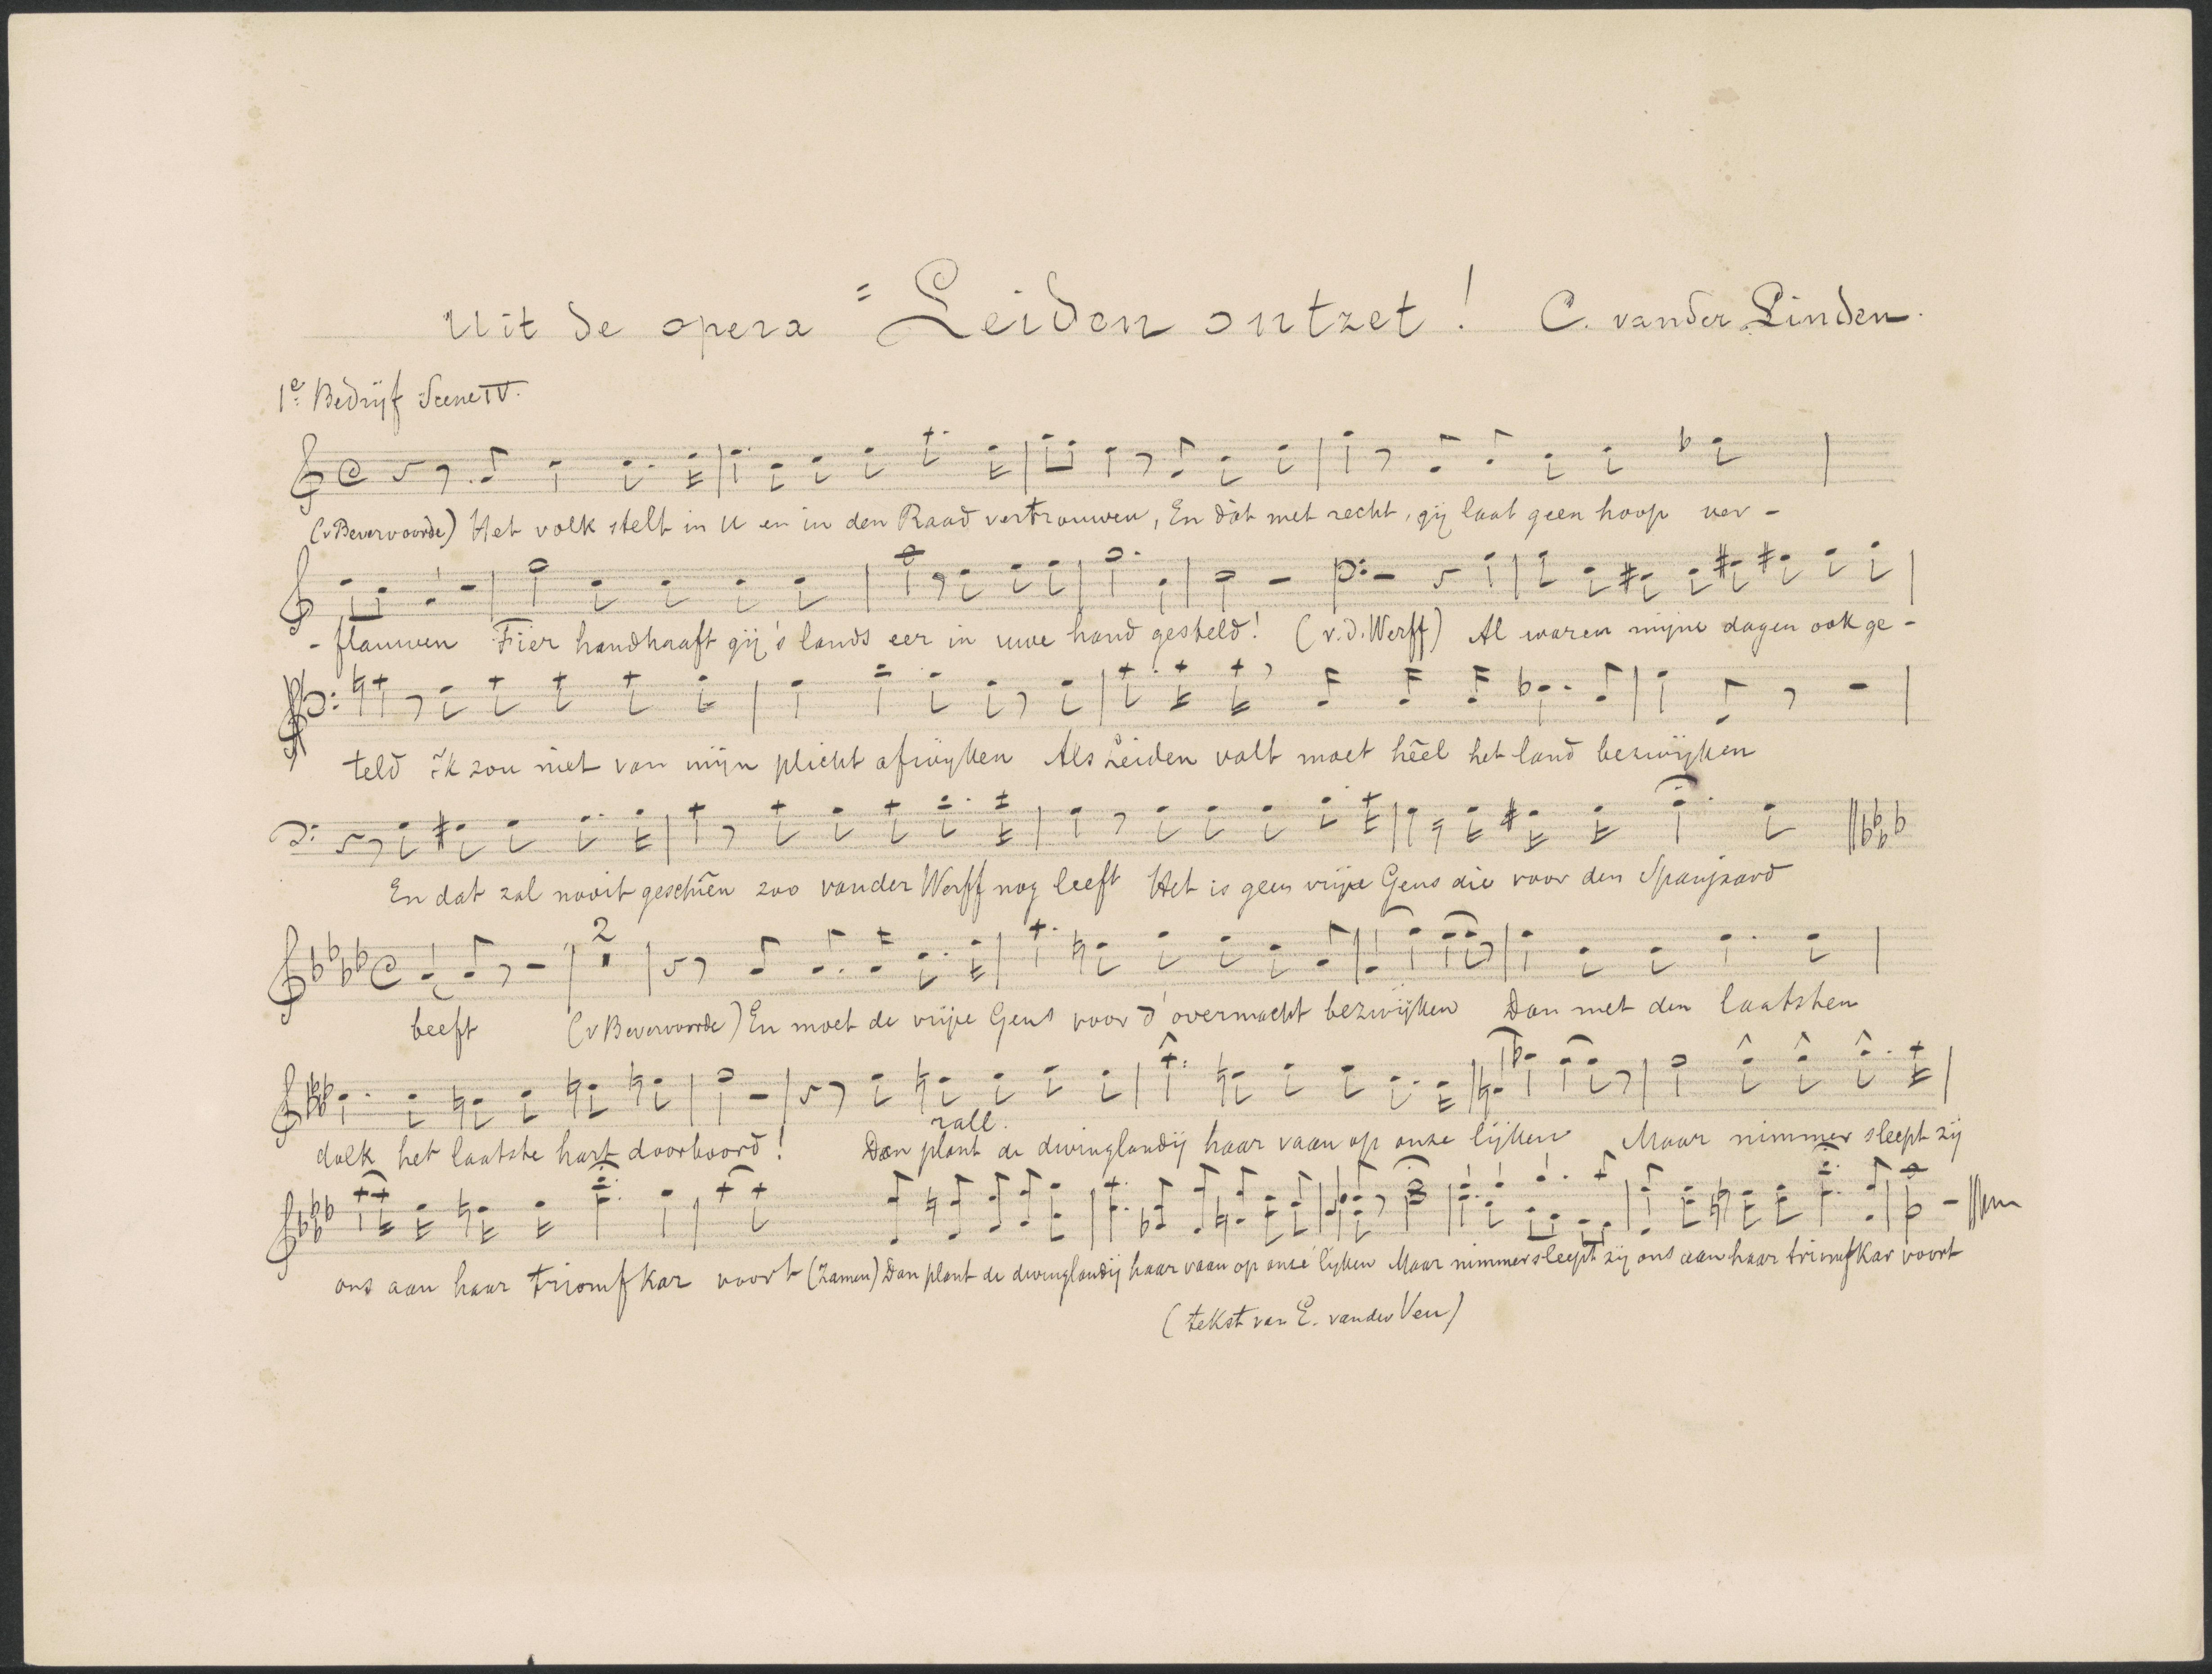 Uit de opera "Leiden ontzet! C. vander Linden.
1e Bedrijf Scene IV.
(vBevervoorde) Het volk stelt in U en in den Raad vertrouwen, En dàt met recht, gij laat geen hoop ver-
-flauwen Fier handhaaft gij 's lands eer in uwe hand gesteld! (v.d. Werff) Al waren mijne dagen ook ge-
teld ik zou niet van mijn plicht afwijken Als Leiden valt moet héél het land bezwijken
En dat zal nooit geschiên zoo vander Werff nog leeft Het is geen vrije Geus die voor den Spanjaard
2
beeft (vBevervoorde) En moet de vrije Geus voor d'overmacht bezwijken Dan met den laatsten
rall.
dolk het laatste hart doorboord! Dan plant de dwinglandij haar vaan op onze lijken Maar nimmer sleept zij
ons aan haar triomfkar voort (Zamen) Dan plant de dwinglandij haar vaan op onze lijken Maar nimmer sleept zij ons aan haar triomfkar voort
(tekst van E. vander Ven)